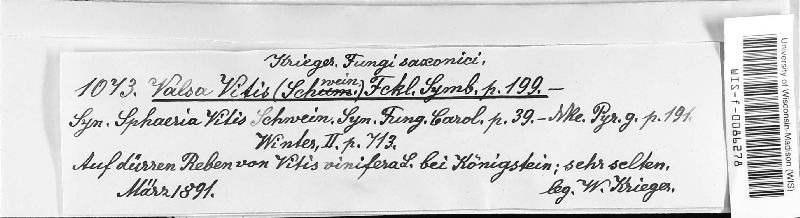 Krieger, Fungi saxonici.
1073. Valsa Vitis (Schwein.) Fckl. Symb. p. 199. —
Syn. Sphaeria Vitis Schwein. Syn. Fung. Carol. p. 39. — Nke. Pyr. g. p. 191.
Winter, II. p. 713.
Auf dürren Reben von Vitis vinifera L. bei Königstein; sehr selten.
März 1891. leg. W. Krieger.
University of Wisconsin-Madison (WIS)
WIS-f-0086278